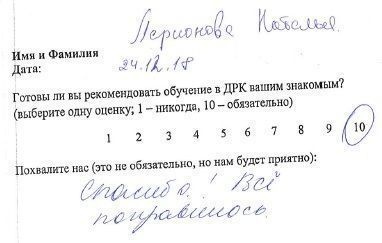 Ларионова Наталья
Имя и Фамилия
Дата: 24.12.18
Готовы ли вы рекомендовать обучение в ДРК вашим знакомым?
(выберите одну оценку; 1 – никогда, 10 – обязательно)
1 2 3 4 5 6 7 8 9 10
Похвалите нас (это не обязательно, но нам будет приятно):
Спасибо! Всё
понравилось.